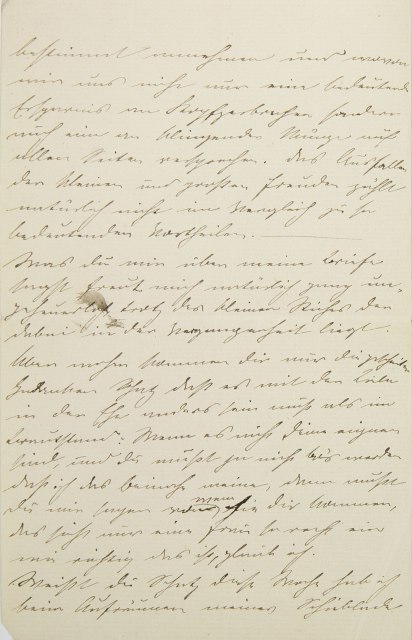 bestimmt annehmen und wovon
wir uns nicht nur eine bedeutende
Ersparnis an Kopfzerbrechen sondern
auch eine an klingender Münze nach
allen Seiten versprechen. Das Ausfallen
der kleinen und großen Freuden zählt
natürlich nicht im Vergleich zu so
bedeutenden Vortheilen.
Was du mir über meine Briefe
sagst freut mich natürlich ganz un-
geheuer trotz des kleinen Stiches der
dabei in der Vergangenheit liegt.
Aber woher kommen dir nur die
Gedanken Schatz daß es mit den
in der Ehe anders sein muß als im
Brautstand. Wenn es nicht deine eignen
sind, und du mußt ja nicht bös werden
daß ich das beinahe meine, dann mußt
du mir sagen wenn sie dir kommen,
das sieht nur eine Frau so recht ein
wie richtig das ist, glaub ich.
Weißt du Schatz diese Woche hab ich
beim Aufräumen meiner Schublade